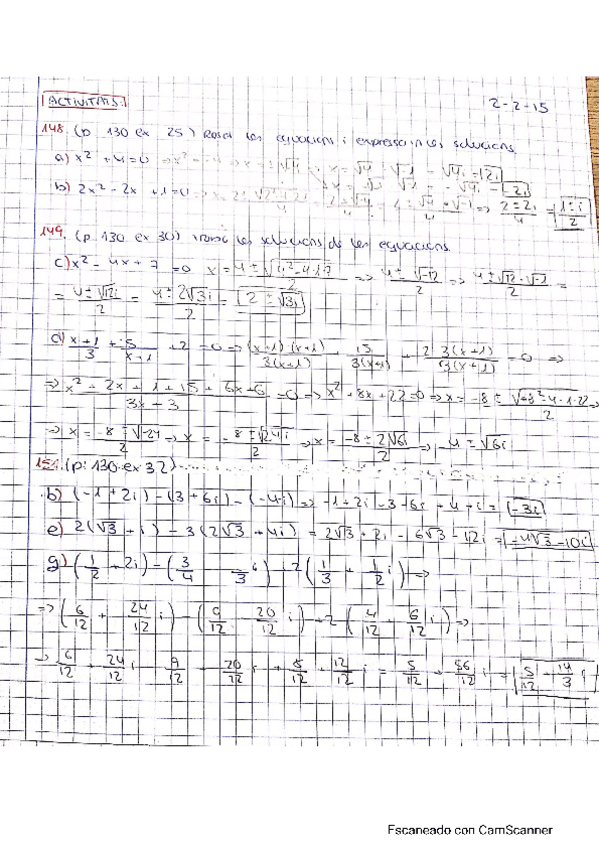 ACTIVITATS: 2-2-15
148. (p 130 ex 25) les equacions i expressa'n les solucions
a) x² + 4 = 0 = √4 · √-1 = √4 i = 2i
b) 2x² - 2x + 1 = 0 => 2 ± 2i / 4 = 1 ± i / 2
149. (p 130 ex 30) les solucions de les equacions
c) x² - 4x + 7 = 0 x = 4 ± √4²-4·1·7 / 2 => 4 ± √-12 / 2 => 4 ± √12 · √-1 / 2 =
= 4 ± √12i / 2 = 4 ± 2√3i / 2 = 2 ± √3i
d) x+1 / 3 + 5 / x+1 + 2 = 0 => (x+1)·(x+1) / 3(x+1) + 15 / 3(x+1) + 2·3(x+1) / 3(x+1) = 0 =>
=> x² + 2x + 1 + 15 + 6x + 6 / 3x + 3 = 0 => x² + 8x + 22 = 0 => x = -8 ± √+8²-4·1·22 / 2
=> x = -8 ± √-24 / 2 => x = -8 ± √24 i / 2 => x = -8 ± 2√6i / 2 => -4 ± √6i
151. (p. 130 ex 32)
b) (-1 + 2i) - (3 + 6i) - (-4i) => -1 + 2i - 3 - 6i + 4 + i = -3i
e) 2(√3 + i) - 3(2√3 + 4i) = 2√3 + 2i - 6√3 - 12i = -4√3 - 10i
g) (1/2 + 2i) - (3/4 - /3 i) + 2(1/3 + 1/2 i) =>
=> (6/12 + 24/12 i) - (9/12 - 20/12 i) + 2(4/12 + 6/12 i) =>
-> 6/12 + 24/12 i - 9/12 + 20/12 i + 8/12 + 12/12 i = 5/12 + 56/12 i = 5/12 + 14/3 i
Escaneado con CamScanner